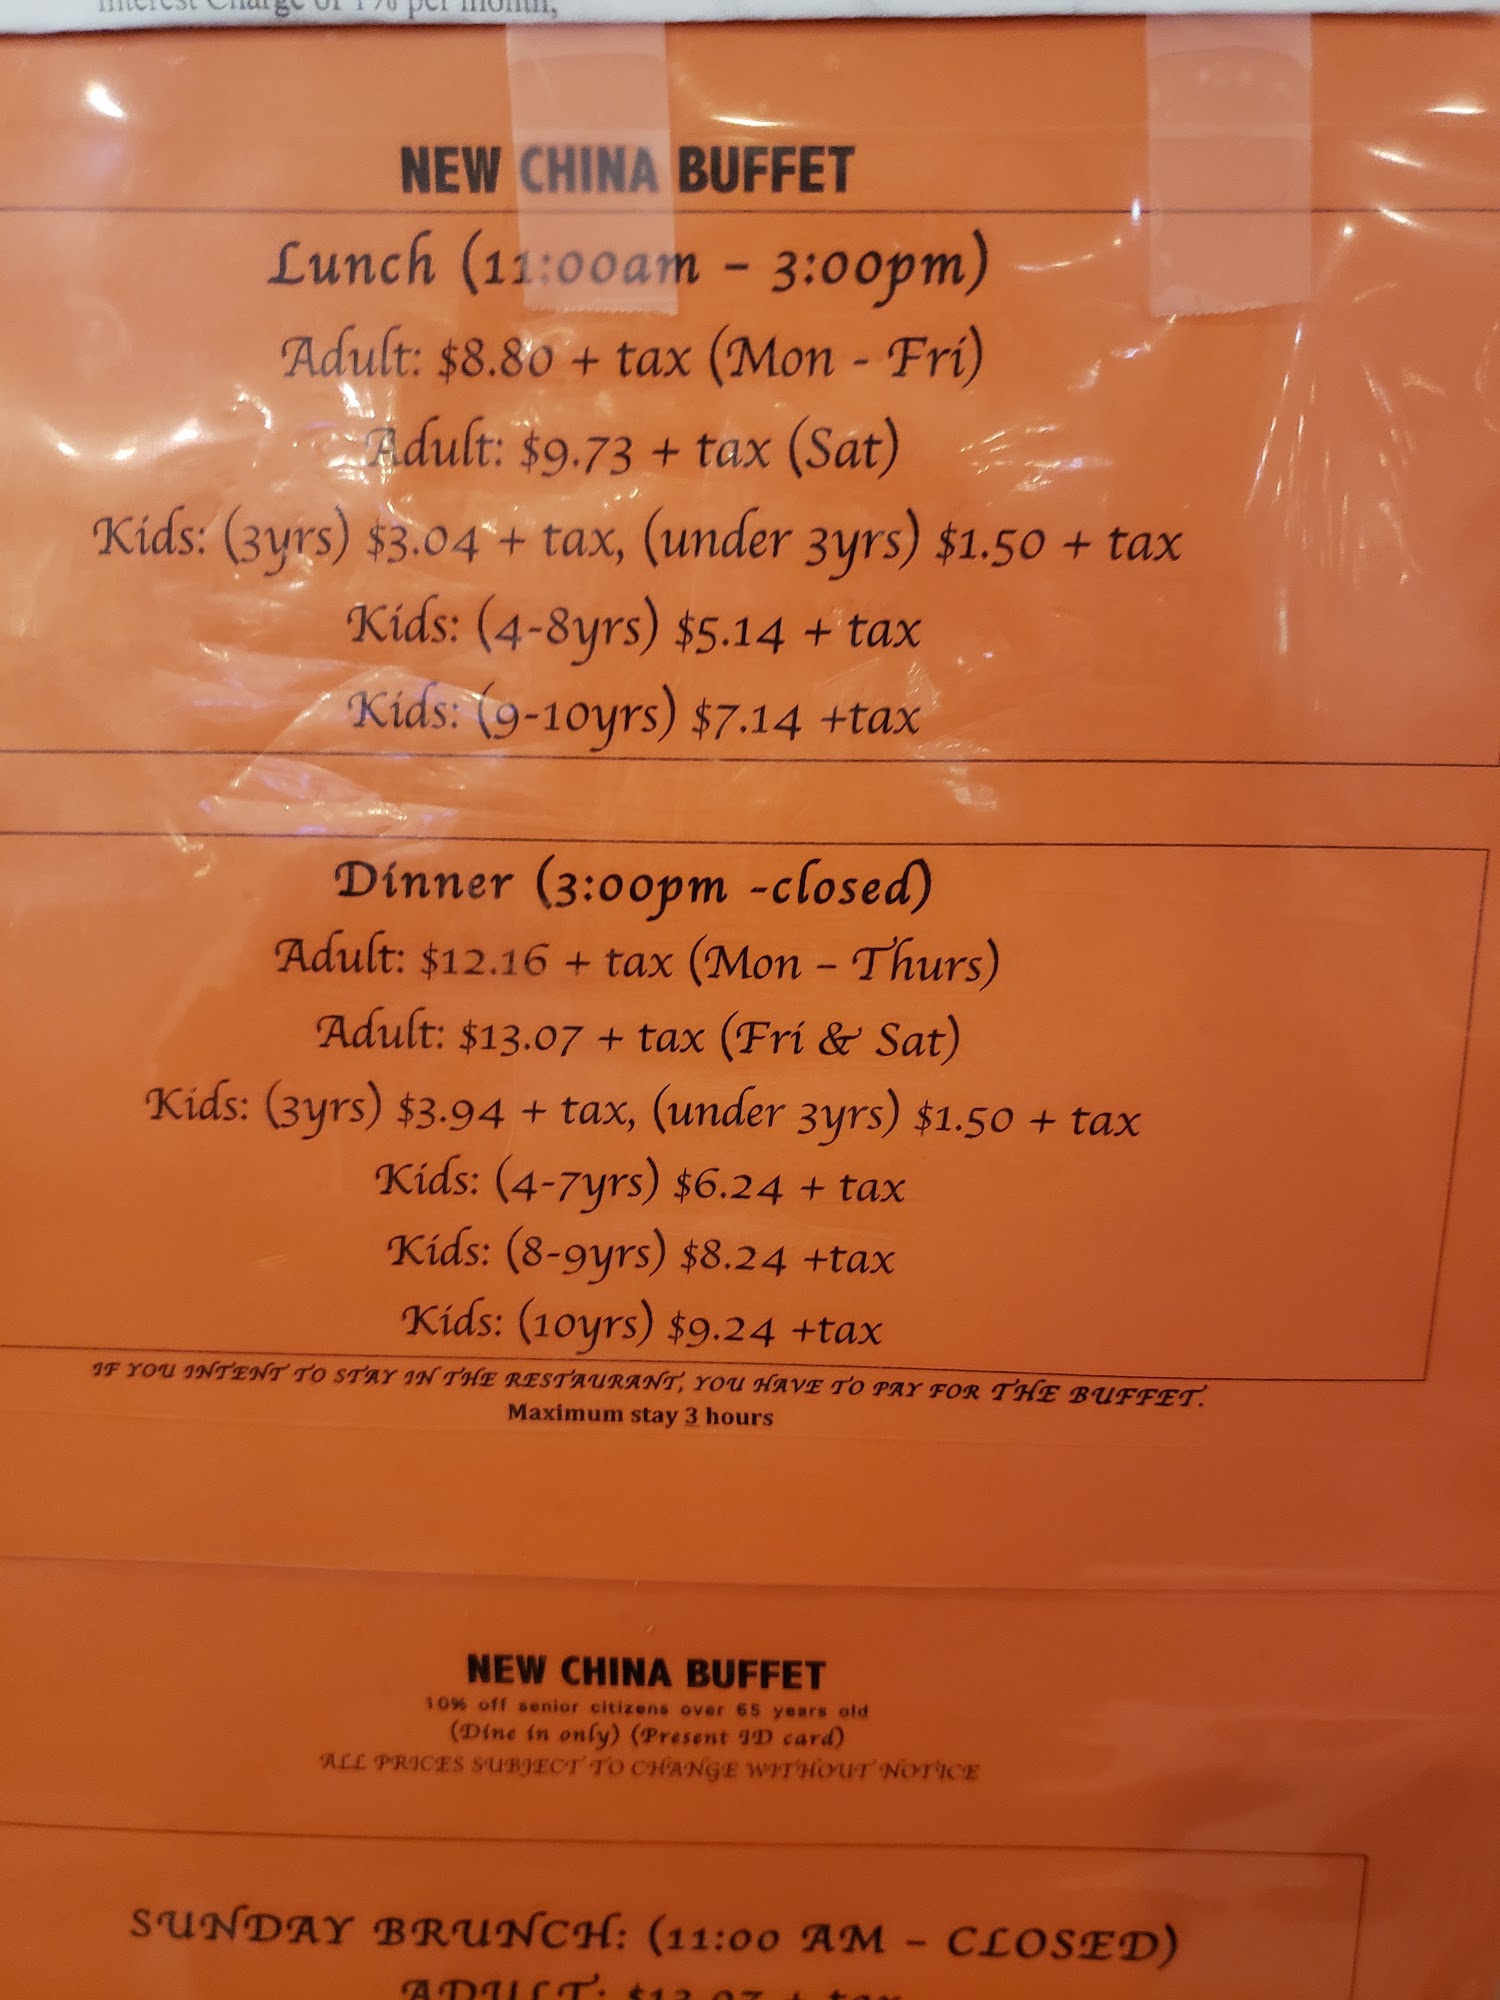 Interest Charge of 1% per month,
NEW CHINA BUFFET
Lunch (11:00am – 3:00pm)
Adult: $8.80 + tax (Mon - Fri)
Adult: $9.73 + tax (Sat)
Kids: (3yrs) $3.04 + tax, (under 3yrs) $1.50 + tax
Kids: (4-8yrs) $5.14 + tax
Kids: (9-10yrs) $7.14 +tax
Dinner (3:00pm -closed)
Adult: $12.16 + tax (Mon – Thurs)
Adult: $13.07 + tax (Fri & Sat)
Kids: (3yrs) $3.94 + tax, (under 3yrs) $1.50 + tax
Kids: (4-7yrs) $6.24 + tax
Kids: (8-9yrs) $8.24 +tax
Kids: (10yrs) $9.24 +tax
IF YOU INTENT TO STAY IN THE RESTAURANT, YOU HAVE TO PAY FOR THE BUFFET.
Maximum stay 3 hours
NEW CHINA BUFFET
10% off senior citizens over 65 years old
(Dine in only) (Present ID card)
ALL PRICES SUBJECT TO CHANGE WITHOUT NOTICE
SUNDAY BRUNCH: (11:00 AM – CLOSED)
ADULT: $13.07 + tax